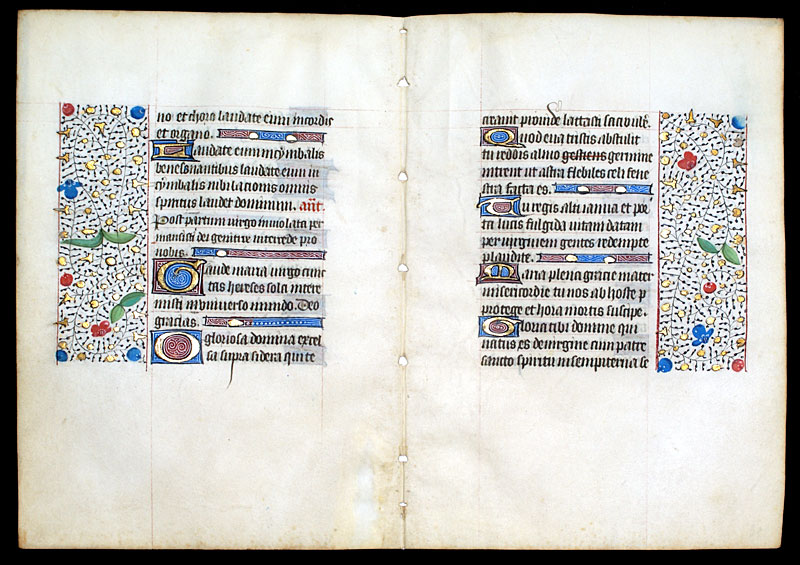 no et choro laudate eum incordis
et organo.
Laudate eum incymbalis
benesonantibus laudate eum in
cymbalis iubilationis omnis
spiritus laudet dominum. añt.
Post partum virgo inviolata per
mansisti dei genitrix intercede pro
nobis.
Gaude maria virgo cunc
tas hereses sola intere
misti inuniverso mundo. Deo
gracias.
O gloriosa domina excel
sa supra sidera qui te
creavit provide lactasti sacro ub̃e.
Quod eua tristis abstulit
tu reddis almo gestiens germine
intrent ut astra flebiles celi fene
stra facta es.
Tu regis alti ianua et por
ta lucis fulgida vitam datam
per virginem gentes redempte
plaudite.
Maria plena gracie mater
misericordie tu nos ab hoste p
protege et hora mortis suscipe.
Gloria tibi domine qui
natus es de virgine cum patre
sancto spiritu insempiterna se